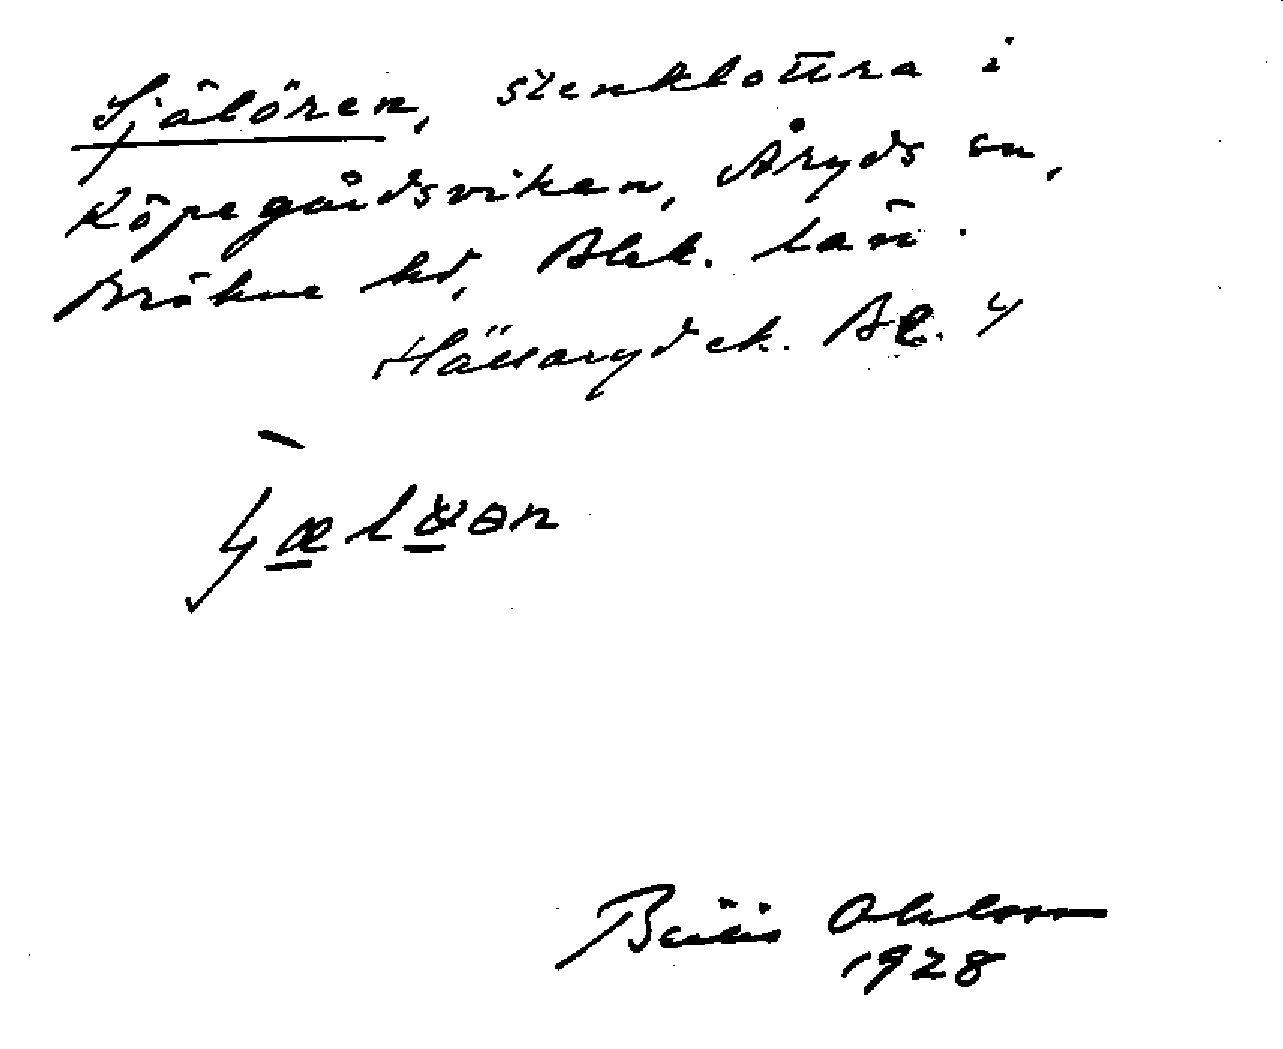 Själören, stenklottra i
Köpegårdsviken, Åryds sn,
Bräkne hd, Blek. län.
Hällaryd ek. Bl. 4
Ohlsson
1928